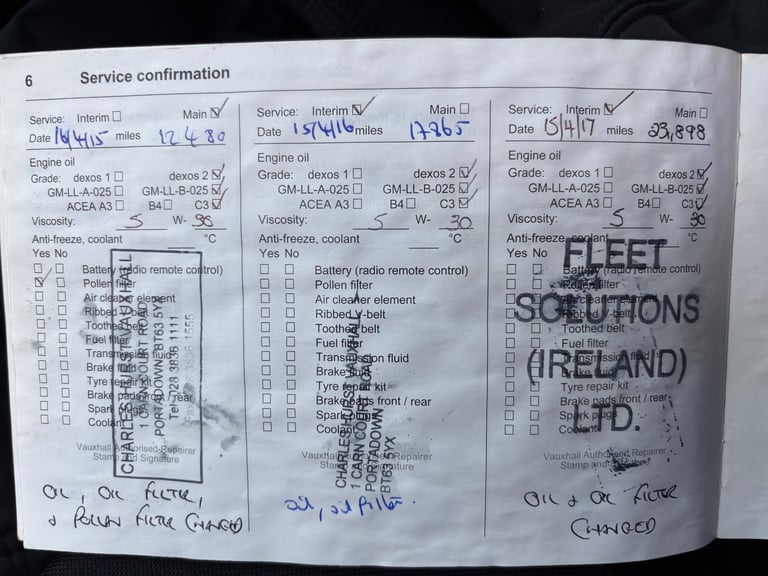 6 Service confirmation
Service: Interim Main
Date 16/4/15 miles 12480
Engine oil
Grade: dexos 1 dexos 2
GM-LL-A-025 GM-LL-B-025
ACEA A3 B4 C3
Viscosity: 5 W- 30
Anti-freeze, coolant °C
Yes No
Battery (radio remote control)
Pollen filter
Air cleaner element
Ribbed V-belt
Toothed belt
Fuel filter
Transmission fluid
Brake fluid
Tyre repair kit
Brake pads front / rear
Spark plugs
Coolant
Vauxhall Authorised Repairer
Stamp and Signature
CHARLES HURST VAUXHALL
1 CARN COURT ROAD
PORTADOWN BT63 5YX
Tel: 028 3836 1111
Fax: 3836 1555
OIL, OIL FILTER,
& POLLEN FILTER CHANGED
Service: Interim Main
Date 15/4/16 miles 17865
Engine oil
Grade: dexos 1 dexos 2
GM-LL-A-025 GM-LL-B-025
ACEA A3 B4 C3
Viscosity: 5 W- 30
Anti-freeze, coolant °C
Yes No
Battery (radio remote control)
Pollen filter
Air cleaner element
Ribbed V-belt
Toothed belt
Fuel filter
Transmission fluid
Brake fluid
Tyre repair kit
Brake pads front / rear
Spark plugs
Coolant
Vauxhall Authorised Repairer
Stamp and Signature
CHARLES HURST VAUXHALL
1 CARN COURT ROAD
PORTADOWN
BT63 5YX
oil, oil filter.
Service: Interim Main
Date 15/4/17 miles 23,898
Engine oil
Grade: dexos 1 dexos 2
GM-LL-A-025 GM-LL-B-025
ACEA A3 B4 C3
Viscosity: 5 W- 30
Anti-freeze, coolant °C
Yes No
Battery (radio remote control)
Pollen filter
Air cleaner element
Ribbed V-belt
Toothed belt
Fuel filter
Transmission fluid
Brake fluid
Tyre repair kit
Brake pads front / rear
Spark plugs
Coolant
Vauxhall Authorised Repairer
Stamp and
FLEET
SOLUTIONS
(IRELAND)
LTD.
OIL & OIL FILTER
CHANGED